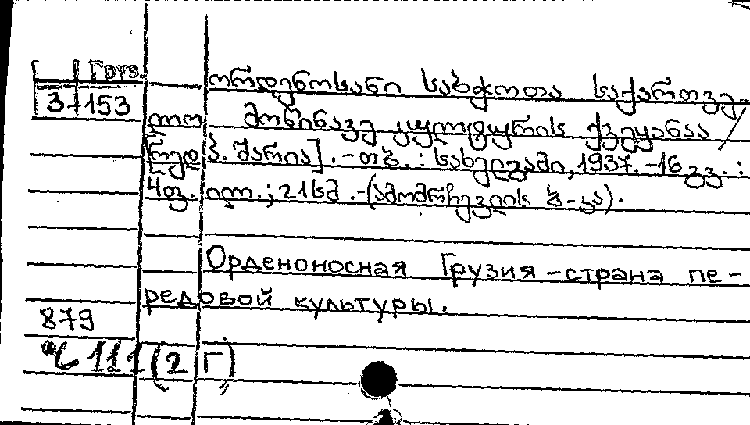 Груз.
3-153
ორდენოსანი საბჭოთა საქართვე
ლო მოწინავე კულტურის ქვეყანაა /
რედ. პ. შარია]. -თბ. : სახელგამი, 1937. -16 გვ. :
4 ფ. ილ. ; 21 სმ. -(ამომრჩევლის ბ-კა).
Орденоносная Грузия - страна пе-
редовой культуры.
879
111 (2 Г)